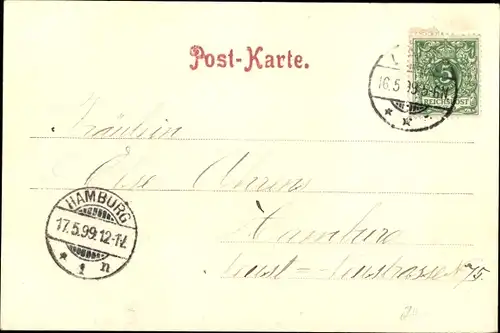 Post-Karte.
16.5.99.5-6N.
5
REICHSPOST
Fräulein
Else Ahrens
HAMBURG
17.5.99.12-1V.
* 1 n
Hamburg
75.